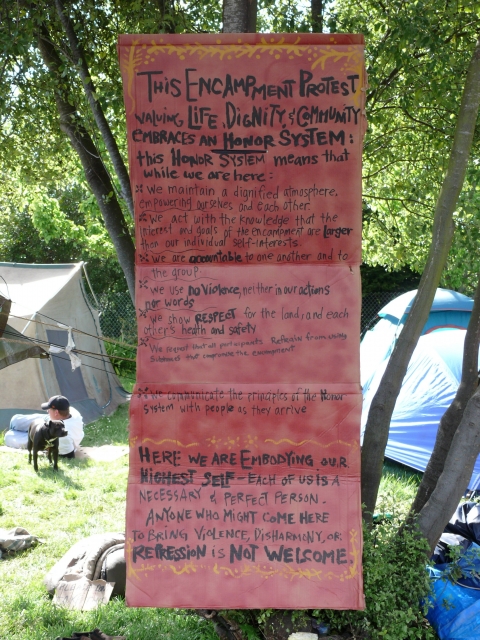 THIS ENCAMPMENT PROTEST
VALUING LIFE, DIGNITY, & COMMUNITY
EMBRACES AN HONOR SYSTEM:
this HONOR SYSTEM means that
while we are here:
* We maintain a dignified atmosphere,
empowering ourselves and each other
* We act with the knowledge that the
interest and goals of the encampment are larger
than our individual self-interests.
* we are accountable to one another and to
the group.
* we use NO Violence, neither in our actions
nor words
* we show RESPECT for the land and each
other's health and safety
* We request that all participants Refrain from using
that compromise the encampment
* We communicate the principles of the Honor
System with people as they arrive
HERE WE ARE EMBODYING OUR
HIGHEST SELF - EACH OF US IS A
NECESSARY & PERFECT PERSON.
ANYONE WHO MIGHT COME HERE
TO BRING VIOLENCE, DISHARMONY, OR
REPRESSION IS NOT WELCOME.